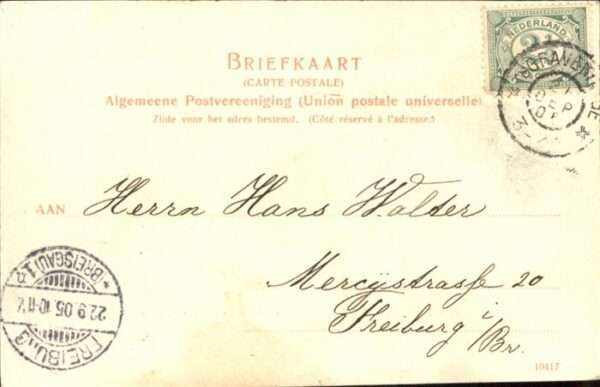 BRIEFKAART
(CARTE POSTALE)
Algemeene Postvereeniging (Union postale universelle)
Zijde voor het adres bestemd. (Côté réservé à l'adresse.)
NEDERLAND
2½
AAN Herrn Hans Walter
Mercystrasse 20
Freiburg i/Br.
FREIBURG
22.9.05.10-11V.
* (BREISGAU) 1.
10417